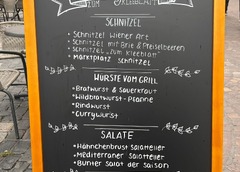 ZUM KLEEBLATT
SCHNITZEL
• Schnitzel Wiener Art
• Schnitzel mit Brie & Preiselbeeren
• Schnitzel „zum Kleeblatt"
• Marktplatz Schnitzel
WÜRSTE VOM GRILL
• Bratwurst & Sauerkraut
• Wildbratwurst - Pfanne
• Rindwurst
• Currywurst
SALATE
• Hähnchenbrust Salatteller
• Mediterraner Salatteller
• Bunter Salat der Saison